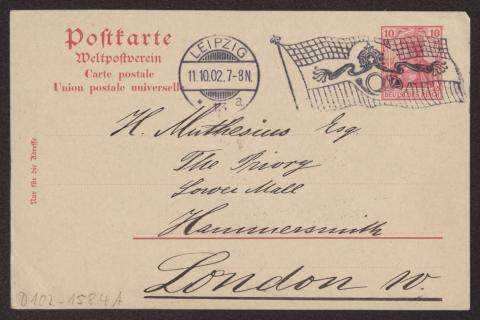 Postkarte
Weltpostverein
Carte postale
Union postale universelle
LEIPZIG
11.10.02.7-8N.
* 13 a.
10 10
DEUTSCHES REICH
H. Muthesius Esq.
The Priory
Lower Mall
Hammersmith
London W.
Nur für die Adresse
D102-1584A